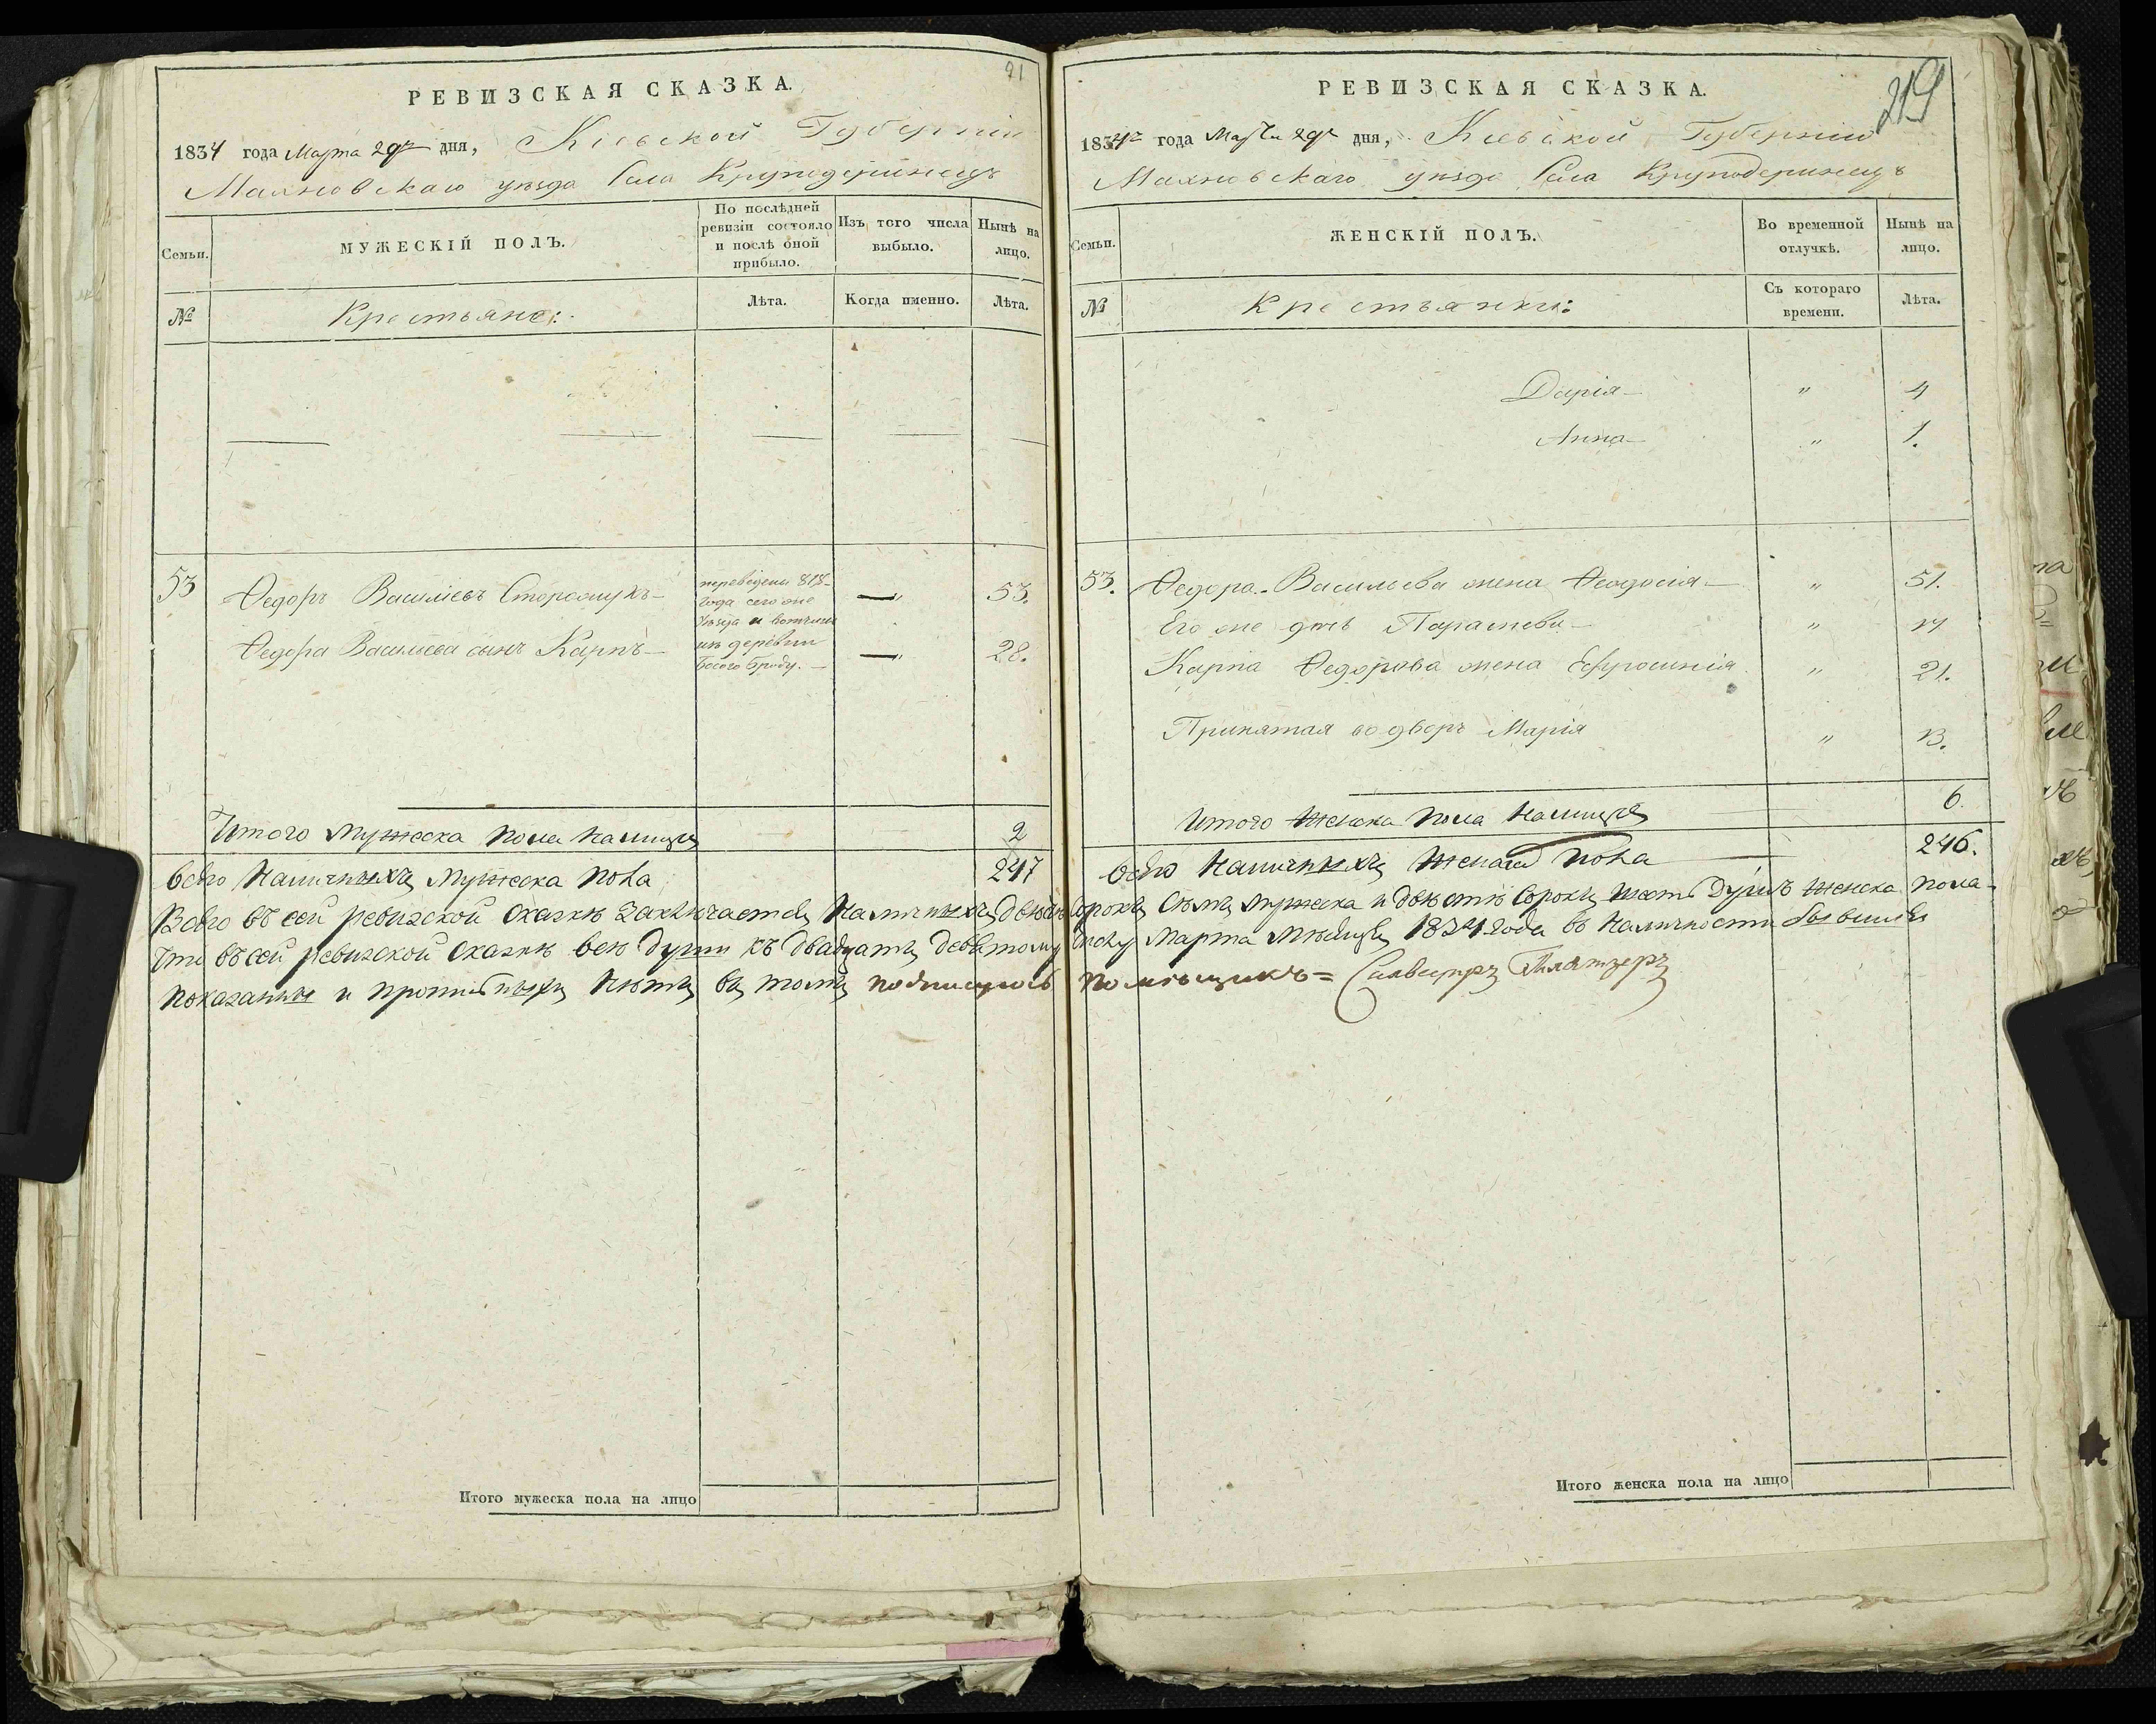 91
РЕВИЗСКАЯ СКАЗКА.
1834 года Марта 29го дня, Кіевской Губерніи
Махновскаго уѣзда Села Круподеринецъ
Семьи.
МУЖЕСКІЙ ПОЛЪ.
По послѣдней ревизіи состояло и послѣ оной прибыло.
Изъ того числа выбыло.
Нынѣ на лицо.
№
Крестьяне:
Лѣта.
Когда именно.
Лѣта.
53
Федоръ Василіевъ — 53.
Федора Василіева сынъ Карпъ — 28.
переведены 818
года сего же
уѣзда и вотчины
изъ деревни
Босого Броду. —
Итого мужеска пола налицо 2
Всего наличныхъ мужеска пола 247
Всего въ сей ревизской сказкѣ заключается наличныхъ двѣсти сорокъ семь мужеска и двѣсти сорокъ шесть душъ женска пола
Что въ сей ревизской сказкѣ всѣ души къ двадцать девятому числу Марта мѣсяца 1834 года въ наличности бывшія
показанны и противъ ихъ лѣта въ томъ подписуюсь помѣщикъ =
Итого мужеска пола на лицо
219
РЕВИЗСКАЯ СКАЗКА.
1834го года Марта 29го дня, Кіевской Губерніи
Махновскаго уѣзда Села Круподеринецъ
Семьи.
ЖЕНСКІЙ ПОЛЪ.
Во временной отлучкѣ.
Нынѣ на лицо.
№
Крестьянки:
Съ котораго времени.
Лѣта.
Дарія — " 4
Анна — " 1.
53. Федора Васильева жена Феодосія — " 51.
Его же дочь — "
Карпа Федорова жена Ефросинія " 21.
Принятая во дворъ Марія " 13.
Итого женска пола налицо 6.
Всего наличныхъ женска пола 246.
Итого женска пола на лицо